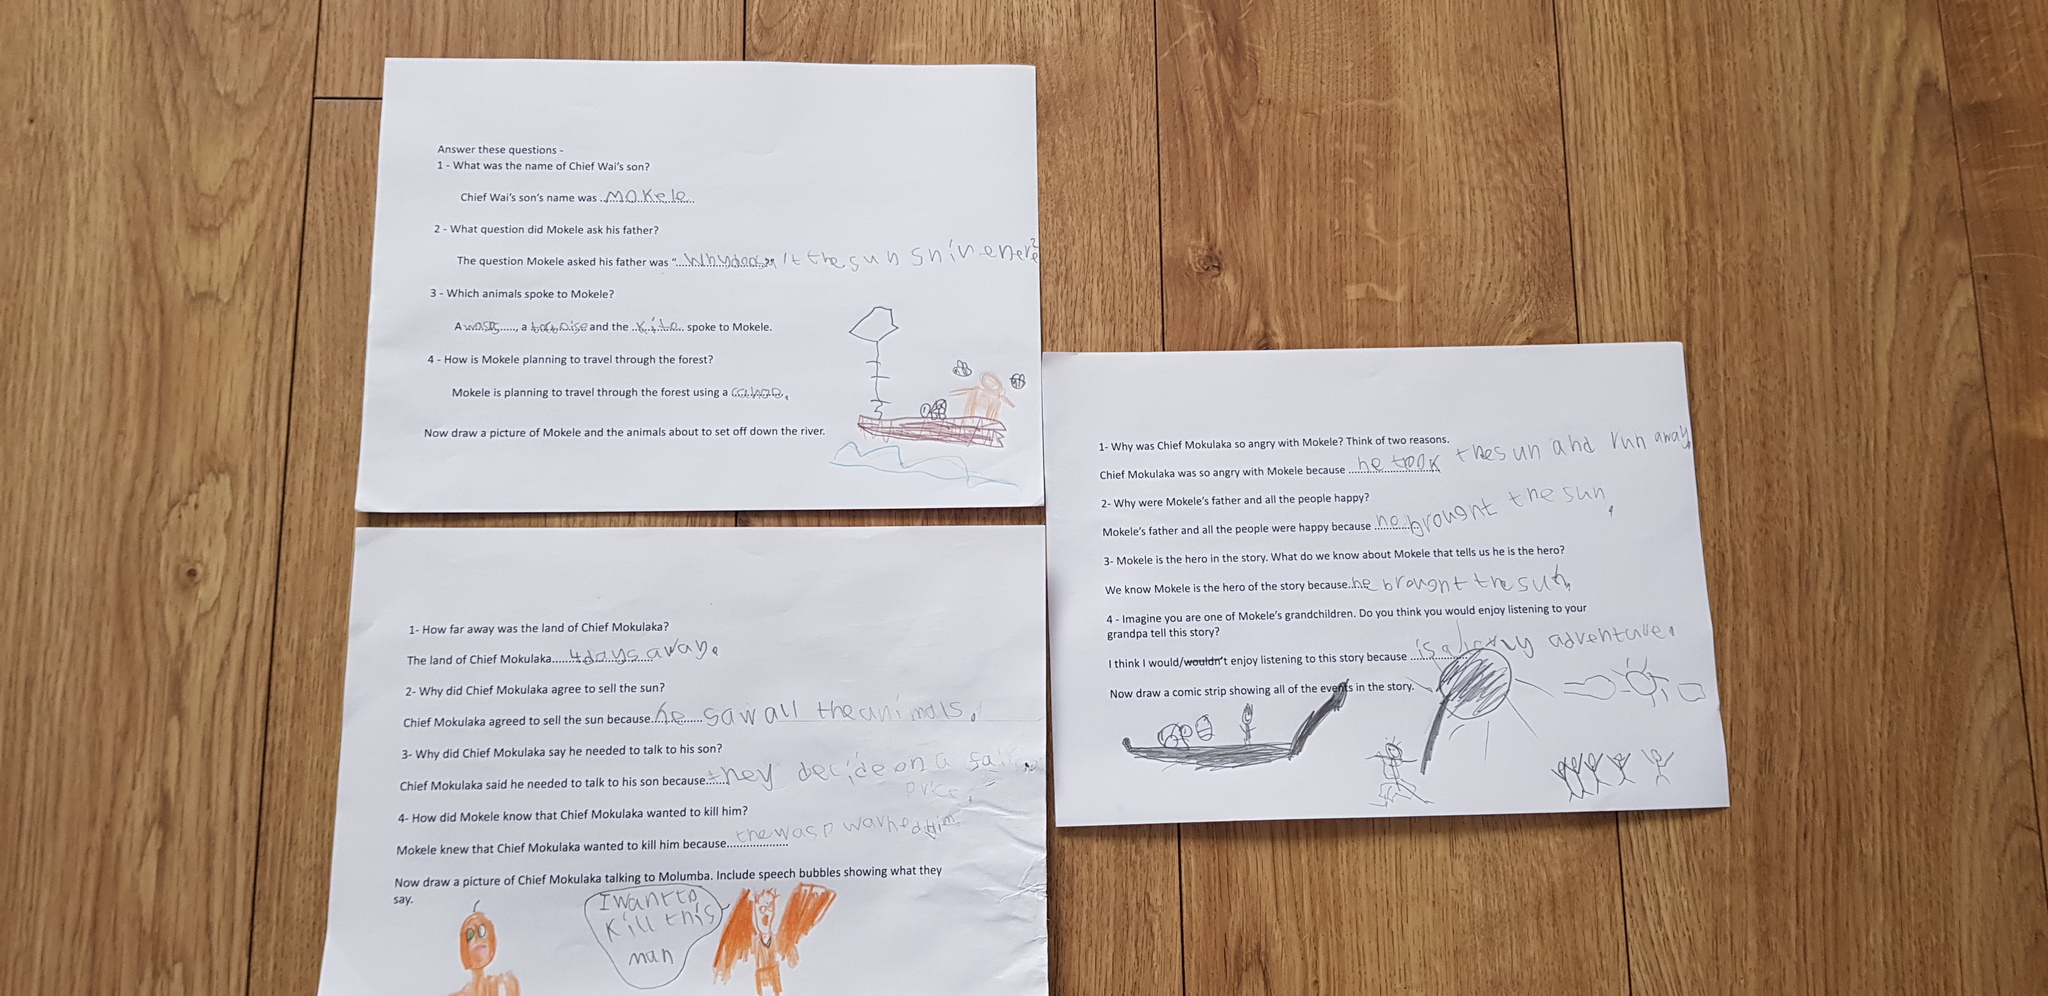 Answer these questions -
1 - What was the name of Chief Wai's son?
Chief Wai's son's name was ..Mokele...
2 - What question did Mokele ask his father?
The question Mokele asked his father was "...Whydoesn it the sun shin ener?
3 - Which animals spoke to Mokele?
A wasp....., a tortoise and the ..Kite.. spoke to Mokele.
4 - How is Mokele planning to travel through the forest?
Mokele is planning to travel through the forest using a canoe.
Now draw a picture of Mokele and the animals about to set off down the river.
1- How far away was the land of Chief Mokulaka?
The land of Chief Mokulaka.....4days away.
2- Why did Chief Mokulaka agree to sell the sun?
Chief Mokulaka agreed to sell the sun because...he saw all the animals.
3- Why did Chief Mokulaka say he needed to talk to his son?
Chief Mokulaka said he needed to talk to his son because......they decide on a fair
price.
4- How did Mokele know that Chief Mokulaka wanted to kill him?
Mokele knew that Chief Mokulaka wanted to kill him because...................the wasp warned him.
Now draw a picture of Chief Mokulaka talking to Molumba. Include speech bubbles showing what they
say.
I want to
kill this
man
1- Why was Chief Mokulaka so angry with Mokele? Think of two reasons.
Chief Mokulaka was so angry with Mokele because ...he took the sun and run away
2- Why were Mokele's father and all the people happy?
Mokele's father and all the people were happy because ...he brought the sun.
3- Mokele is the hero in the story. What do we know about Mokele that tells us he is the hero?
We know Mokele is the hero of the story because..he brought the sun.
4 - Imagine you are one of Mokele's grandchildren. Do you think you would enjoy listening to your
grandpa tell this story?
I think I would/wouldn't enjoy listening to this story because ...is a adventure.
Now draw a comic strip showing all of the events in the story.